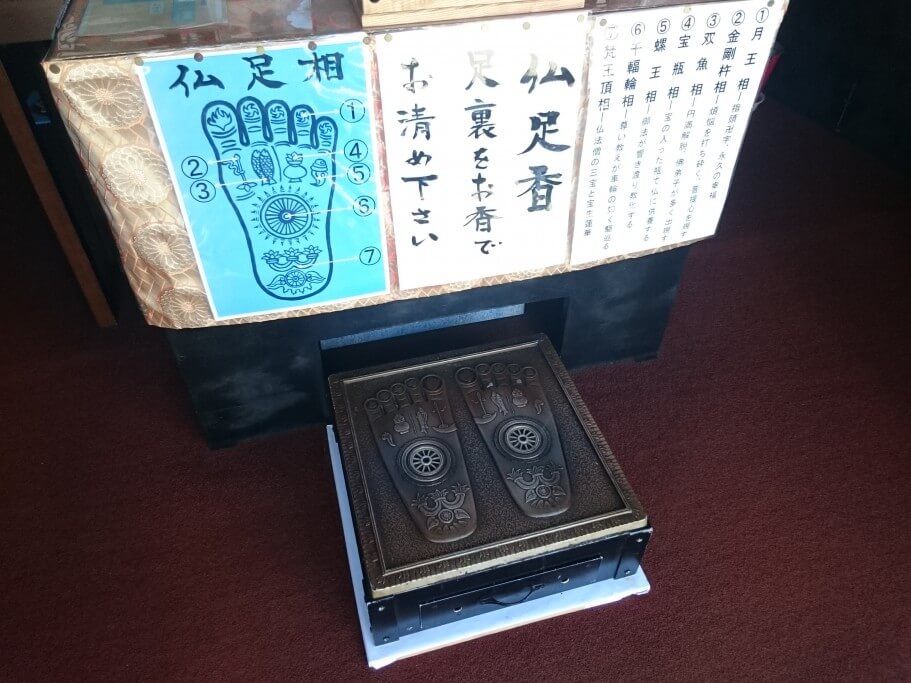 仏足相
①
②
③
④
⑤
⑥
⑦
仏足香
足裏をお香で
お清め下さい
①月王相―指頭卍字、永久の幸福
②金剛杵相―煩悩を打ち砕く、菩提心を現す
③双魚相―円満解脱、佛弟子が多く出現す
④宝瓶相―宝の入った瓶で仏に供養する
⑤螺王相―御法が響き渡り教化する
⑥千輻輪相―尊い教えが車輪の如く駆巡る
⑦梵王頂相―仏法僧の三宝と宝生蓮華